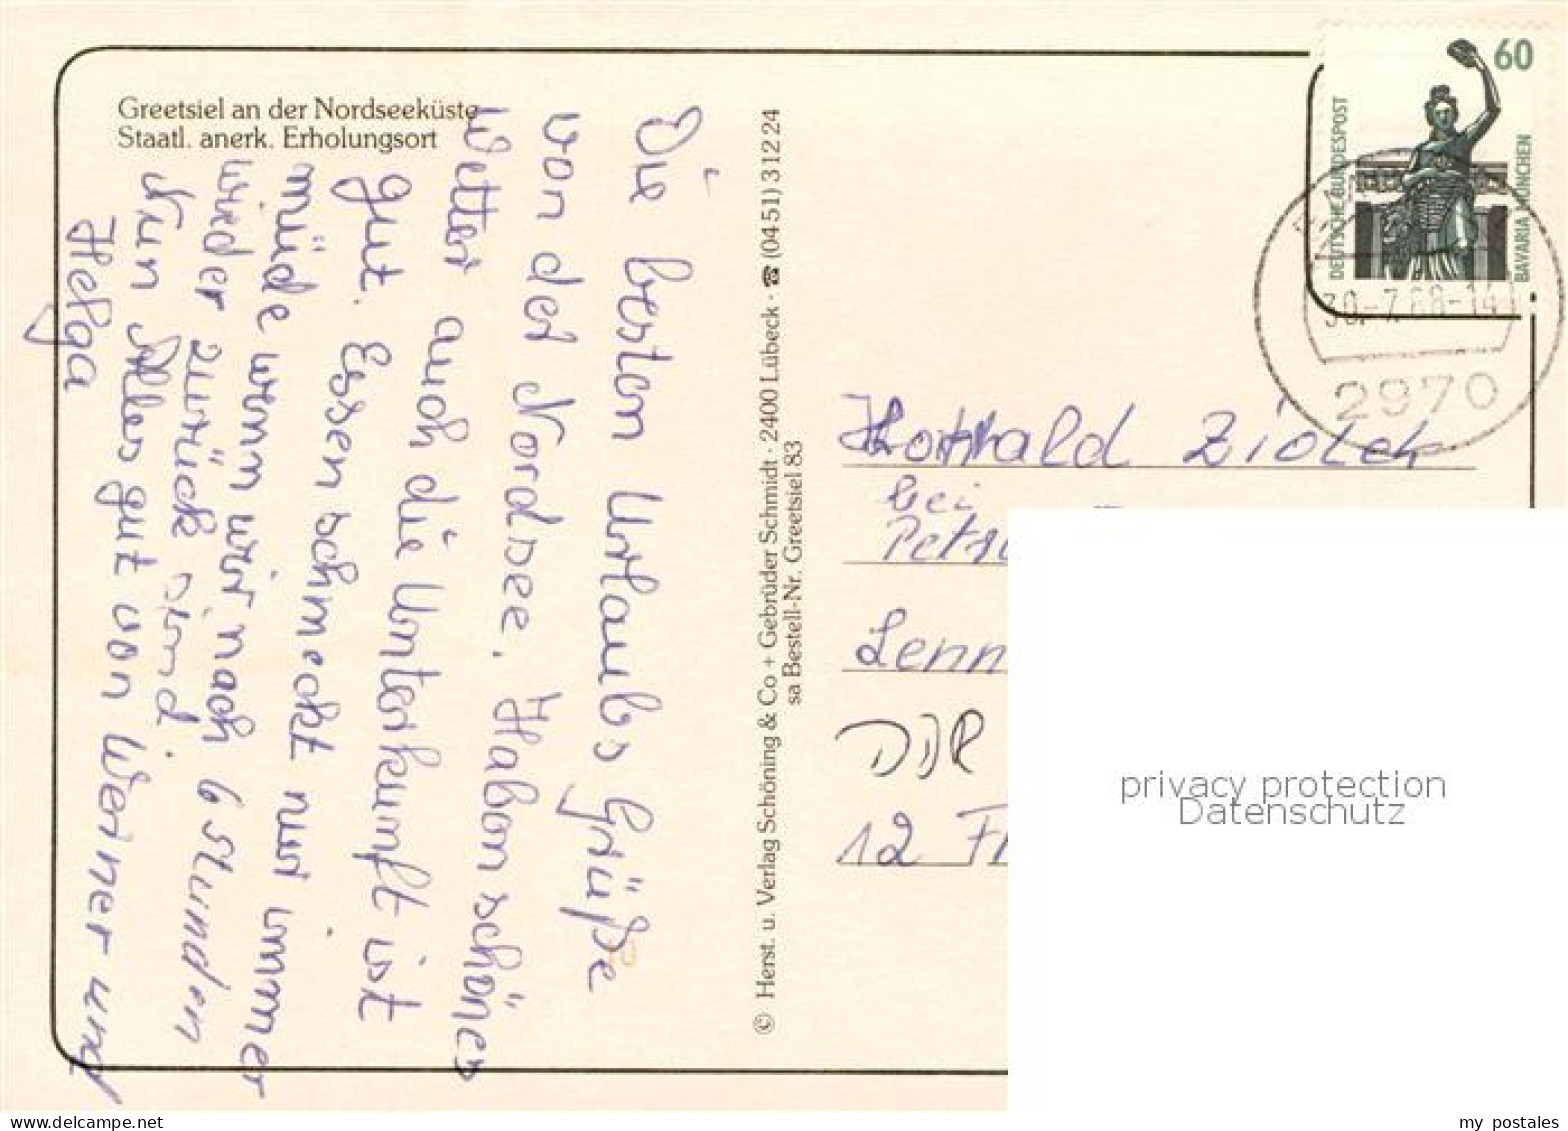 Greetsiel an der Nordseeküste
Staatl. anerk. Erholungsort
Die besten Urlaubs Grüße
von der Nordsee. Haben schönes
Wetter auch die Unterkunft ist
gut. Essen schmeckt nur immer
müde wenn wir nach 6 Stunden
wieder zurück sind.
Nun Alles gut von Werner und
Helga
© Herst. u. Verlag Schöning & Co + Gebrüder Schmidt · 2400 Lübeck · ☎ (0451) 3 12 24
sa Bestell-Nr. Greetsiel 83
60
DEUTSCHE BUNDESPOST
BAVARIA MÜNCHEN
30.-7.88-14
2970
Ziolek
bei
Lenn
DDR
12
privacy protection
Datenschutz
www.delcampe.net
my_postales